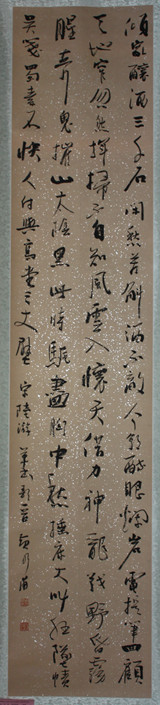 傾家釀酒三千石閑愁萬斛酒不敵今朝醉眼爛岩電提筆四顧
天地窄忽然揮掃不自知風雲入懷天借力神龍戰野昏霧
腥奇鬼摧山太陰黑此時驅盡胸中愁捶床大叫狂墮幘
吳箋蜀素不快人付與高堂三丈壁 宋陸游草書歌一首